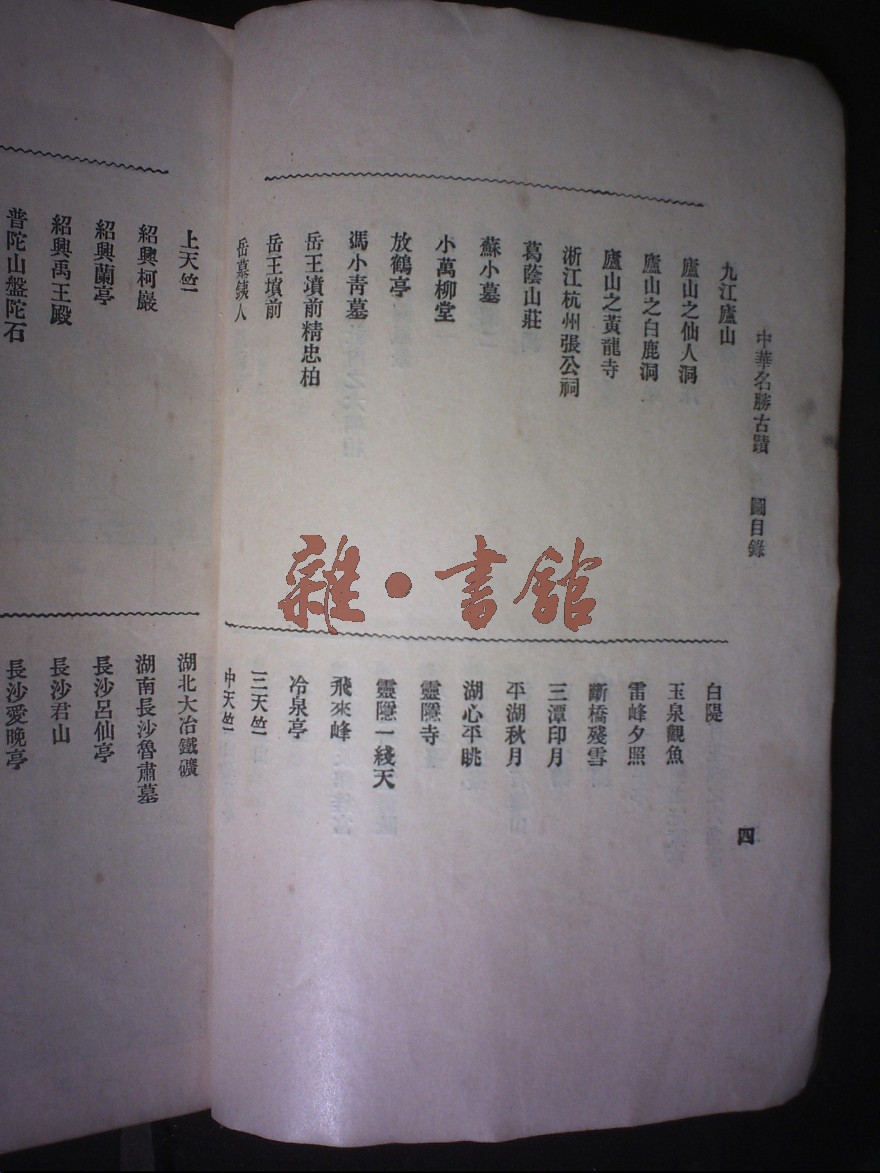 中華名勝古蹟 圖目錄
四
九江廬山
廬山之仙人洞
廬山之白鹿洞
廬山之黃龍寺
浙江杭州張公祠
葛蔭山莊
蘇小墓
小萬柳堂
放鶴亭
馮小青墓
岳王墳前精忠柏
岳王墳前
岳墓鐵人
白隄
玉泉觀魚
雷峰夕照
斷橋殘雪
三潭印月
平湖秋月
湖心平眺
靈隱寺
靈隱一綫天
飛來峰
冷泉亭
三天竺
中天竺
上天竺
紹興柯巖
紹興蘭亭
紹興禹王殿
普陀山盤陀石
湖北大冶鐵礦
湖南長沙魯肅墓
長沙呂仙亭
長沙君山
長沙愛晚亭
雜·書館